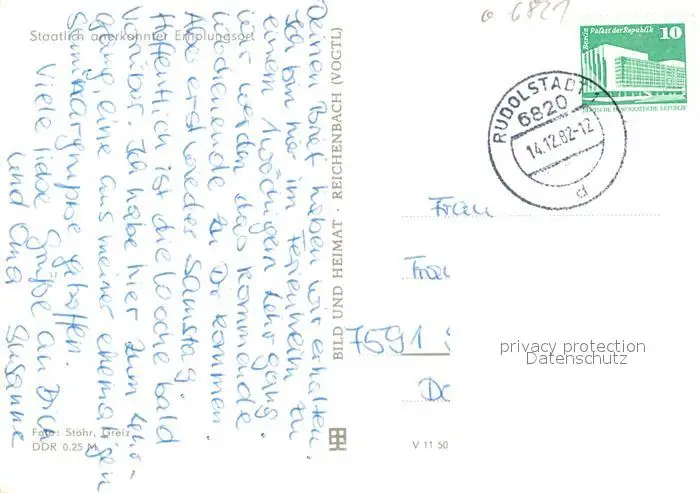 Staatlich anerkannter Erholungsort
Deinen Brief haben wir erhalten.
Ich bin hier im Ferienheim zu
einem 1wöchigen Lehrgang
wir werden das kommende
Wochenende zu Dir kommen
Also erst wieder Samstag.
Hoffentlich ist die Woche bald
vorüber. Ich habe hier zum Lehr-
gang, eine aus meiner ehemaligen
Seminargruppe getroffen.
Viele liebe Grüße an Dich
und Oma Susanne
Foto: Stöhr, Greiz
DDR 0,25 M
BILD UND HEIMAT · REICHENBACH (VOGTL)
V 11 50
6821
Berlin Palast der Republik
10
DEUTSCHE DEMOKRATISCHE REPUBLIK
RUDOLSTADT 1
6820
14.12.82-12
d
Frau
Frau
7591
Do
privacy protection
Datenschutz